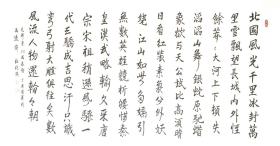 北國風光千里冰封萬
里雪飄望長城内外惟
餘莽々大河上下頓失
滔滔山舞銀蛇原馳蠟
象欲與天公試比高須晴
日看紅裝素裹分外妖
嬈江山如此多嬌引
無數英雄競折腰惜秦
皇漢武略輸文采唐
宗宋祖稍遜風騷一
代天驕成吉思汗只識
彎弓射大雕俱往矣數
風流人物還看今朝